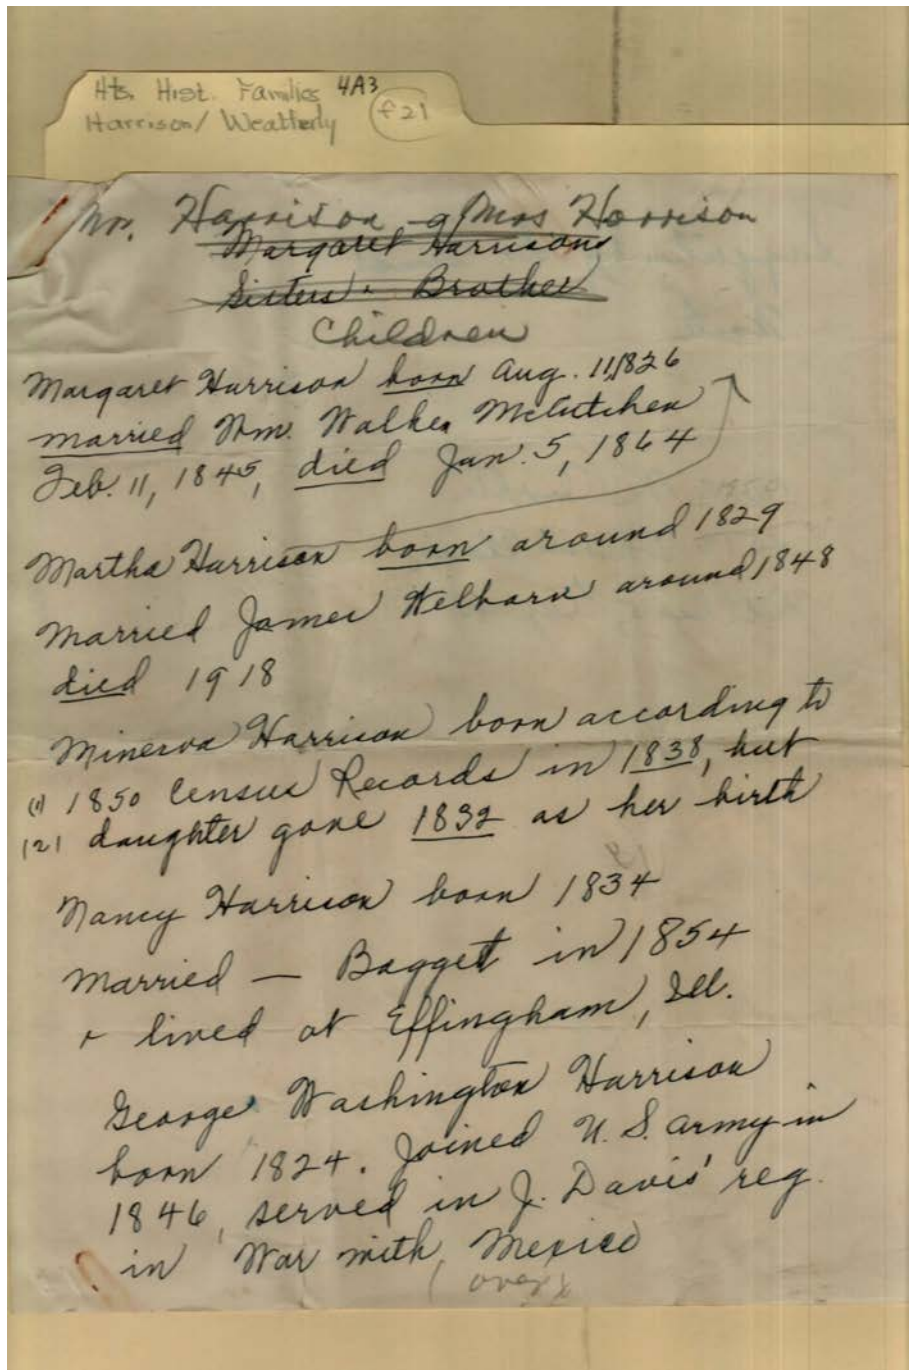 Hts. Hist. Families 4A3
Harrison/Weatherly f21
Mr. Harrison & Mrs Harrison
Margaret Harrisons
Sisters & Brother
Children
Margaret Harrison born Aug. 11, 1826
married Wm. Walker McCutchen
Feb. 11, 1845, died Jan. 5, 1864
Martha Harrison born around 1829
Married James Welborn around 1848
died 1918
Minerva Harrison born according to
(1) 1850 Census Records in 1838, but
(2) daughter gave 1832 as her birth
Nancy Harrison born 1834
Married — Bagget in 1854
& lived at Effingham, Ill.
George Washington Harrison
born 1824. Joined U.S. Army in
1846, served in J. Davis' reg.
in War with Mexico
(over)